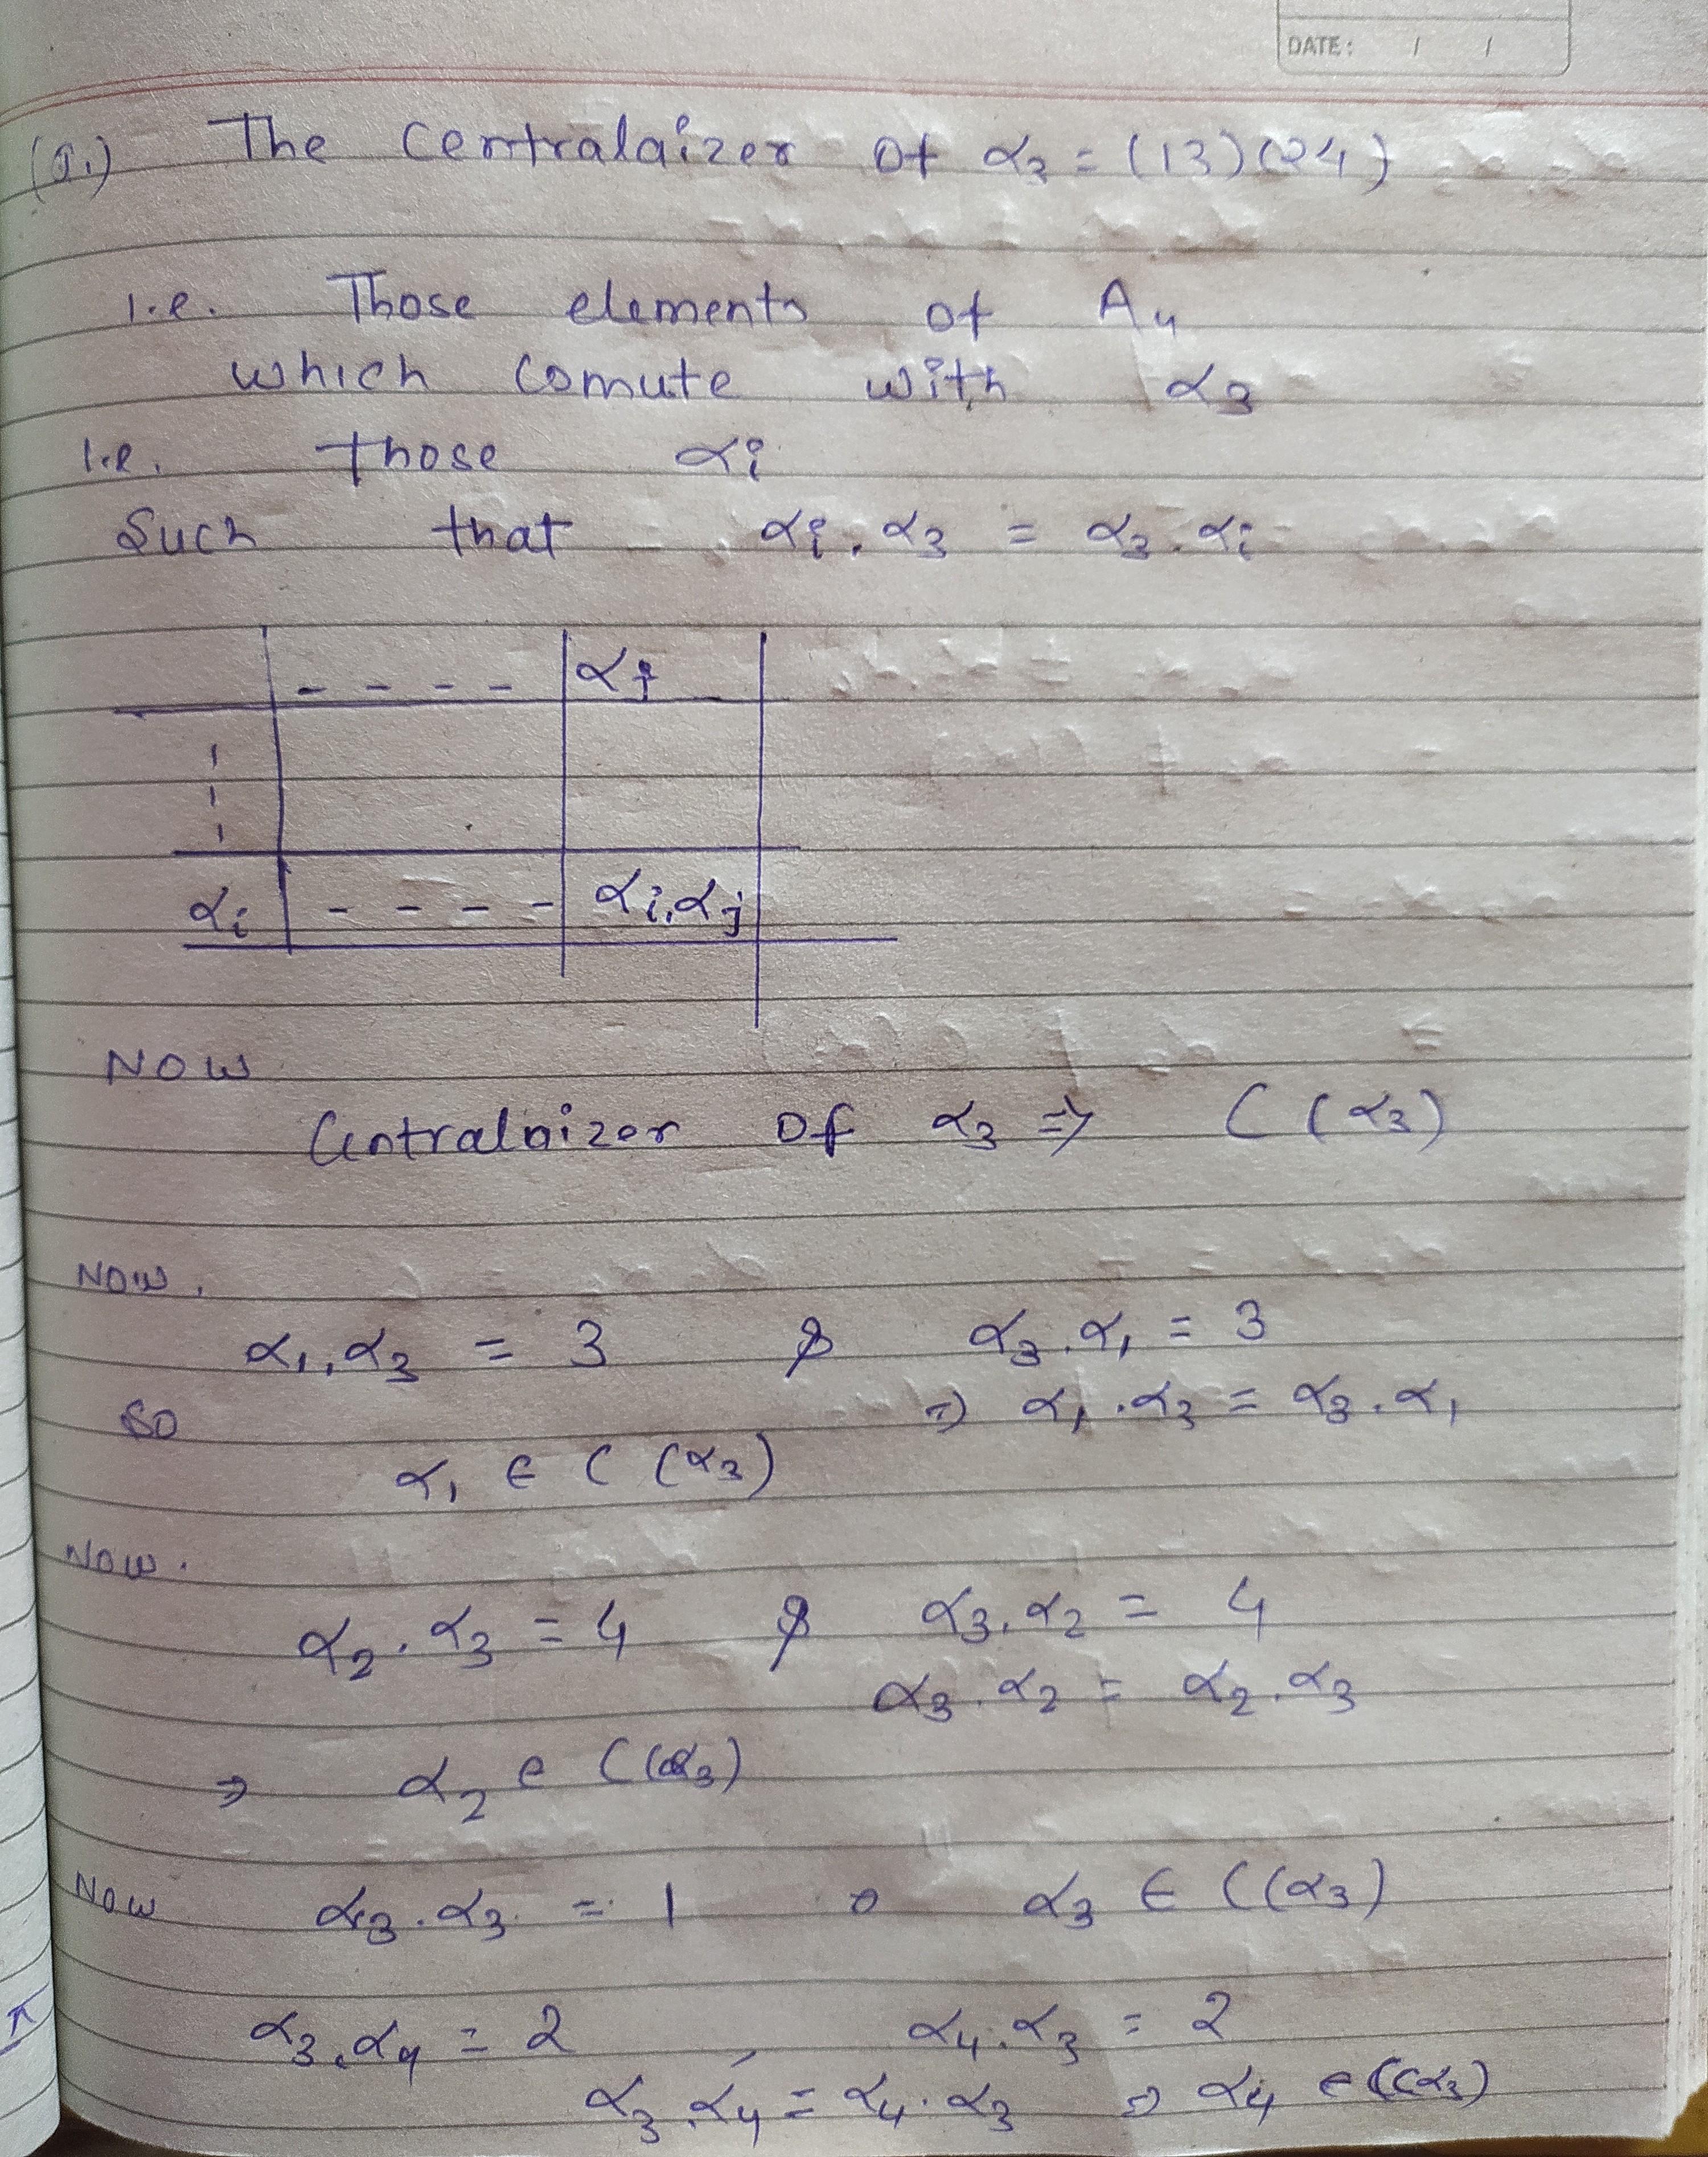 DATE: / /
(I.) The Centralaizer of α3 = (13)(24)
i.e. Those elements of A4
which comute with α3
i.e. those αi
Such that αi . α3 = α3 . αi
- - - - αj
αi - - - - αi.αj
NOW
Centralaizer of α3 ⇒ C (α3)
NOW,
α1.α3 = 3 & α3.α1 = 3
⇒ α1.α3 = α3.α1
SO
α1 ∈ C (α3)
NOW.
α2.α3 = 4 & α3.α2 = 4
α3.α2 = α2.α3
⇒ α2 ∈ C(α3)
NOW α3.α3 = 1 α3 ∈ C(α3)
α3.α4 = 2 α4.α3 = 2
α3.α4 = α4.α3 ⇒ α4 ∈ C(α3)